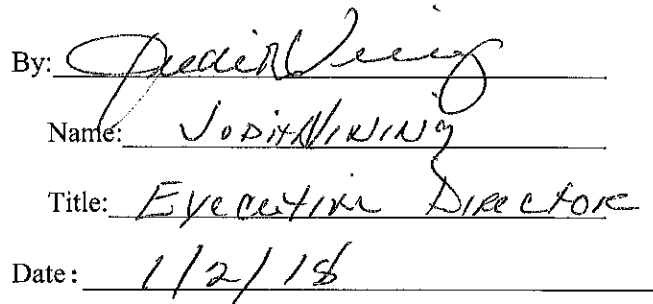 By: Judith Vining
Name: Judith Vining
Title: Executive Director
Date: 1/2/18